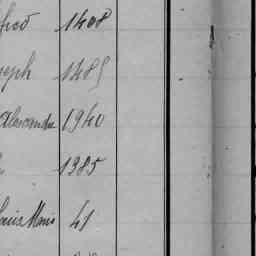 1408
seph 1485
Alexandre 1940
1385
Louis Marie 41